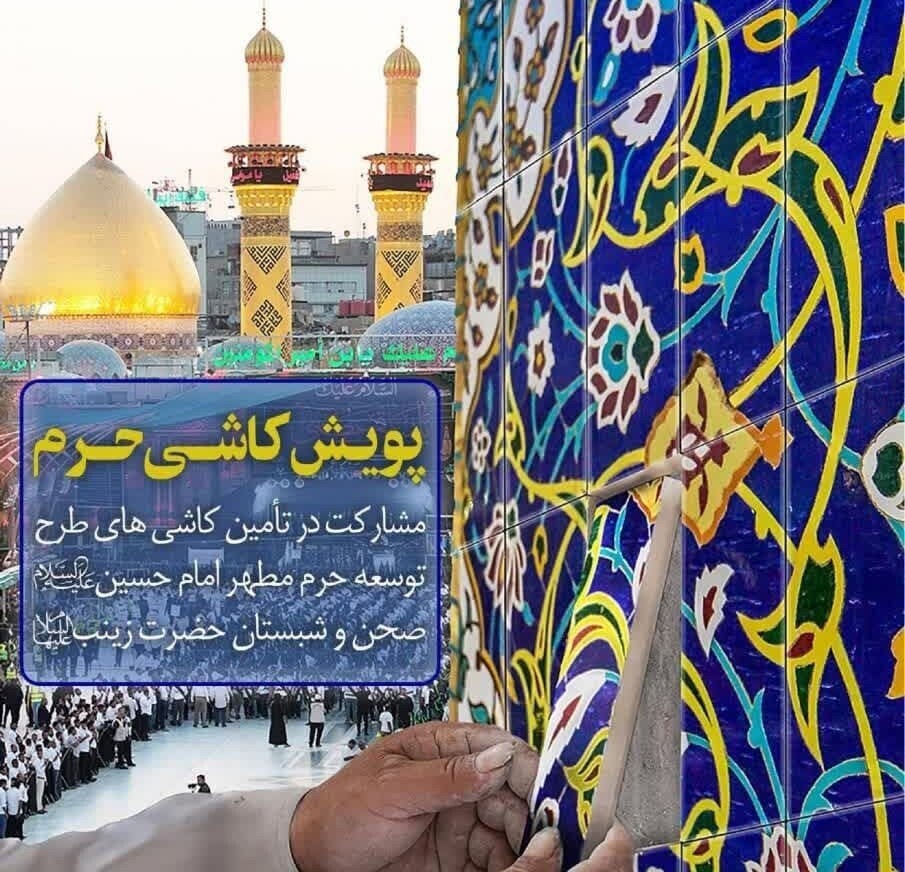 السلام علیک
پویش کاشی حرم
مشارکت در تأمین کاشی های طرح
توسعه حرم مطهر امام حسین علیه السلام
صحن و شبستان حضرت زینب سلام الله علیها